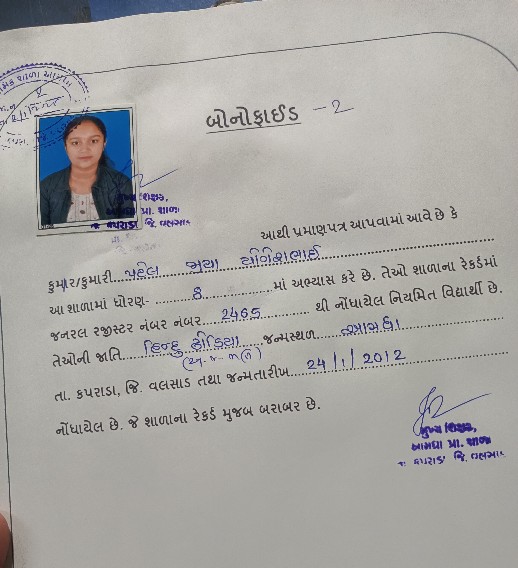 બોનોફાઈડ - 2
મુખ્ય શિક્ષક,
પ્રા. શાળા
કપરાડા જિ. વલસાડ
આથી પ્રમાણપત્ર આપવામાં આવે છે કે
કુમાર/કુમારી પટેલ યોગેશભાઈ
આ શાળામાં ધોરણ- 8 માં અભ્યાસ કરે છે. તેઓ શાળાના રેકર્ડમાં
જનરલ રજીસ્ટર નંબર નંબર 2465 થી નોંધાયેલ નિયમિત વિદ્યાર્થી છે.
તેઓની જાતિ હિન્દુ ધોડિયા જન્મસ્થળ આમધા
(અ.જ.જા)
તા. કપરાડા, જિ. વલસાડ તથા જન્મતારીખ 24/1/2012
નોંધાયેલ છે. જે શાળાના રેકર્ડ મુજબ બરાબર છે.
મુખ્ય શિક્ષક,
આમધા પ્રા. શાળા
તા કપરાડા જિ. વલસાડ